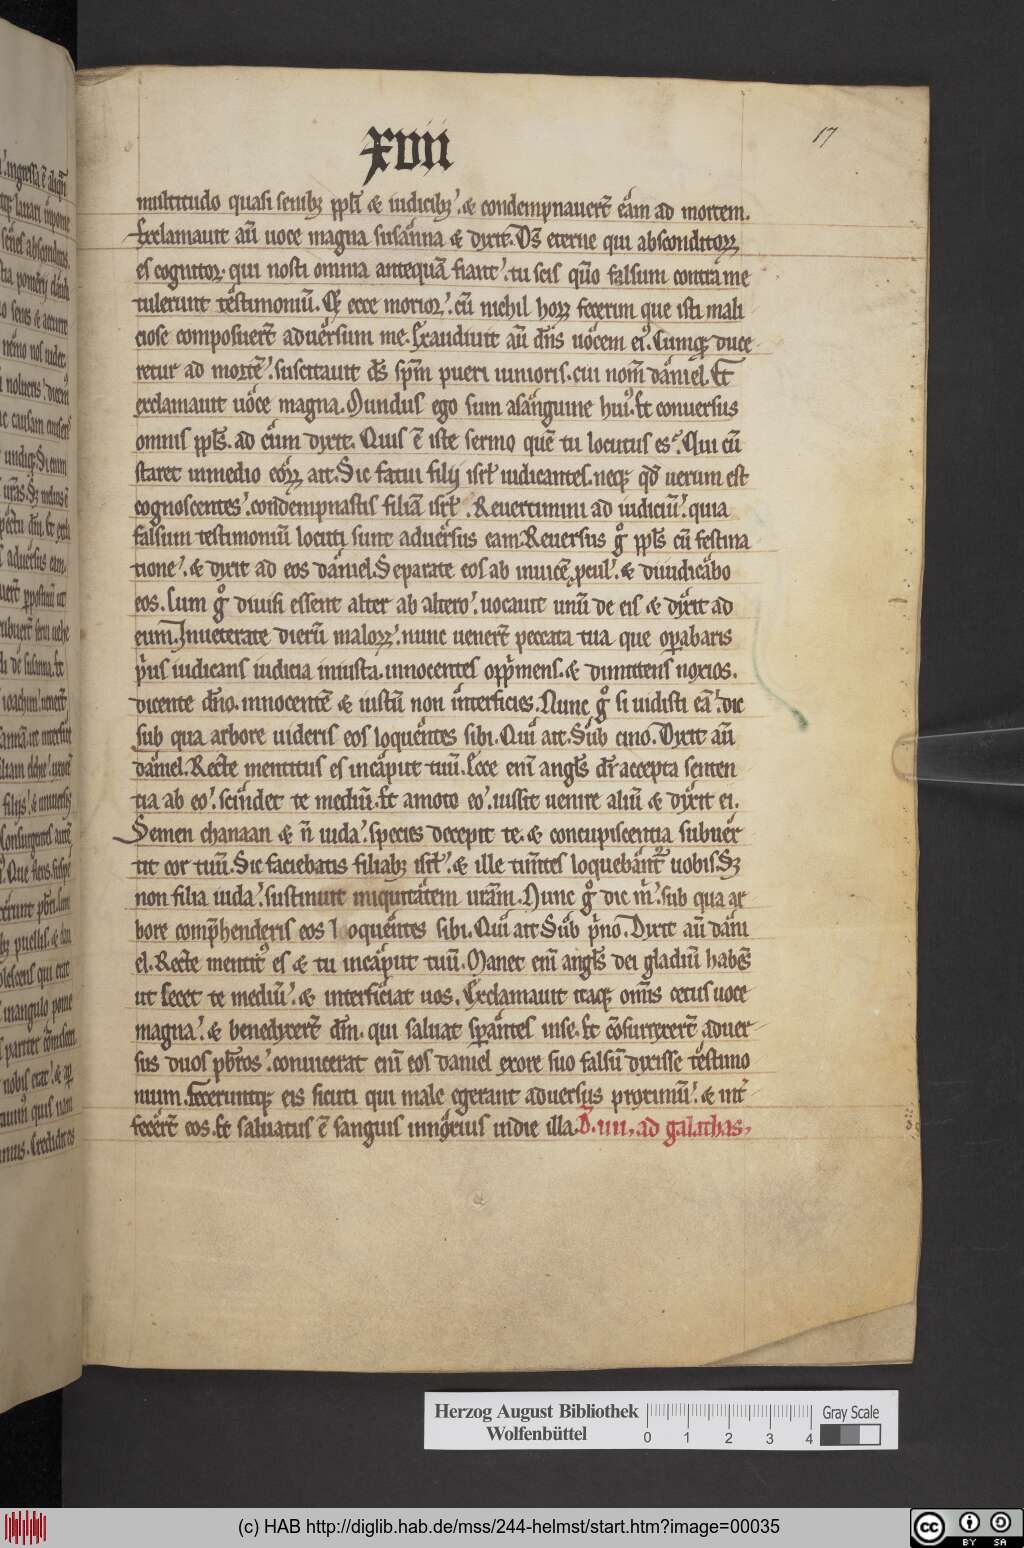 xvii
17
multitudo quasi senibꝫ ppl̄i & iudicibꝫ. & condempnauer̄t eam ad mortem.
Exclamauit aū uoce magna susanna & dyxit. Ds̄ eterne qui absconditoꝝ
es cognitor. qui nosti omnia antequā fiant. tu scis qm̄o falsum contra me
tulerunt testimoniū. Et ecce morior. cū nichil hoꝝ fecerim que isti mali
ciose composuer̄t aduersum me. Exaudiuit aū dn̄s uocem eiꝰ. Cumqꝫ duce
retur ad mortē. suscitauit ds̄ spm̄ pueri iunioris. cui nom̄ daniel. Et
exclamauit uoce magna. Mundus ego sum asanguine huiꝰ. Et conuersus
omnis ppls̄. ad eum dyxit. Quis ē iste sermo quē tu locutus es. Qui cū
staret inmedio eoꝝ ait. Sic fatui filij isrl̄ iudicantes. neqꝫ qd̄ uerum est
cognoscentes. condempnastis filiā isrl̄. Reuertimini ad iudiciū. quia
falsum testimoniū locuti sunt aduersus eam. Reuersus gͦ ppls̄ cū festina
tione. & dyxit ad eos daniel. Separate eos ab inuicē pcul. & diiudicabo
eos. Cum gͦ diuisi essent alter ab altero. uocauit unū de eis & dyxit ad
eum. Inueterate dierū maloꝝ. nunc uener̄t peccata tua que opabaris
pius iudicans iudicia iniusta. innocentes opp̄mens. & dimittens noxios.
dicente dn̄o. innocentē & iustū non interficies. Nunc gͦ si uidisti eā. dic
sub qua arbore uideris eos loquentes sibi. Qui ait. Sub cino. Dyxit aū
daniel. Recte mentitus es incaput tuū. Ecce eni angls̄ di accepta senten
tia ab eo. scindet te mediū. Et amoto eo. iussit uenire aliū & dyxit ei.
Semen chanaan & n̄ iuda. species decepit te. & concupiscentia subuer
tit cor tuū. Sic faciebatis filiabꝫ isrl̄. & ille timētes loquebant̄ uobis. Sꝫ
non filia iuda. sustinuit iniquitatem uram̄. Nunc gͦ dic m̄. sub qua ar
bore comp̄henderis eos loquentes sibi. Qui ait Sub p̄no. Dixit aū dani
el. Recte mentitꝰ es & tu incaput tuū. Manet eni angls̄ dei gladiū habēs
ut secet te mediū. & interficiat uos. Exclamauit itaqꝫ omīs cetus uoce
magna. & benedyxer̄t dm̄. qui saluat sperantes inse. Et cōsurrexer̄t aduer
sus duos pbr̄os. conuicerat eni eos daniel exore suo falsū dyxisse testimo
nium. Feceruntqꝫ eis sicuti qui male egerant aduersus proximū. & int̄
fecer̄t eos. Et saluatus ē sanguis innoxius indie illa. D. iiii. ad galathas.
Herzog August Bibliothek
Wolfenbüttel
0 1 2 3 4
Gray Scale
(c) HAB http://diglib.hab.de/mss/244-helmst/start.htm?image=00035
cc BY SA